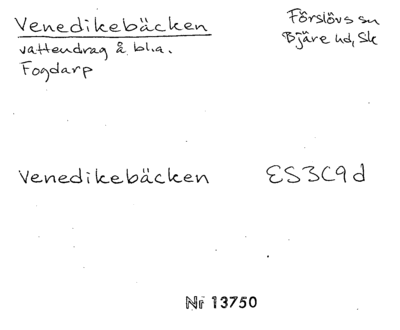 Venedikebäcken
vattendrag å bl.a.
Fogdarp
Förslövs sn
Bjäre hd, Sk
Venedikebäcken ES3C9d
Nr 13750